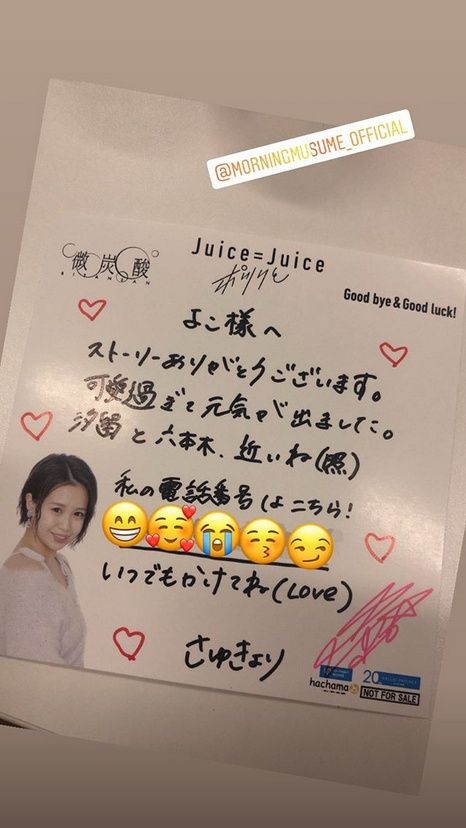 @MORNINGMUSUME_OFFICIAL
微炭酸
BITANSAN
Juice=Juice
ポツリと
Good bye & Good luck!
よこ様へ
ストーリーありがとうございます。
可愛過ぎて元気が出ました。
汐留と六本木、近いね(照)
私の電話番号はこちら!
😁🥰😭😚😏
いつでもかけてね(Love)
さゆきより
hachama
20
NOT FOR SALE